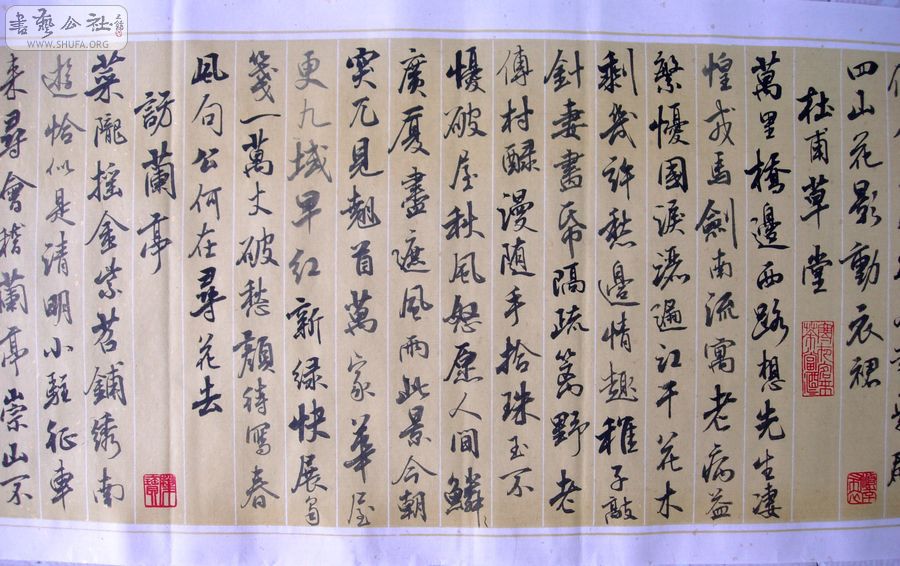 四山花影動衣裙
杜甫草堂
萬里橋邊西路想先生淒
惶戎馬劍南流寓老病益
繁懮國淚灑遍江干花木
剩幾許愁邊情趣稚子敲
針妻畫帋隔疏籬野老
傳村醪漫随手拾珠玉不
懮破屋秋風怒愿人間鱗〻
廣厦盡遮風雨此景今朝
突兀見翹首萬家華屋
更九域早紅新綠快展蜀
箋一萬丈破愁顏待寫春
風句公何在尋花去
訪蘭亭
菜隴搖金紫苕鋪繡南
遊恰似是清明小駐征車
来尋會稽蘭亭崇山不
書藝公社
WWW.SHUFA.ORG